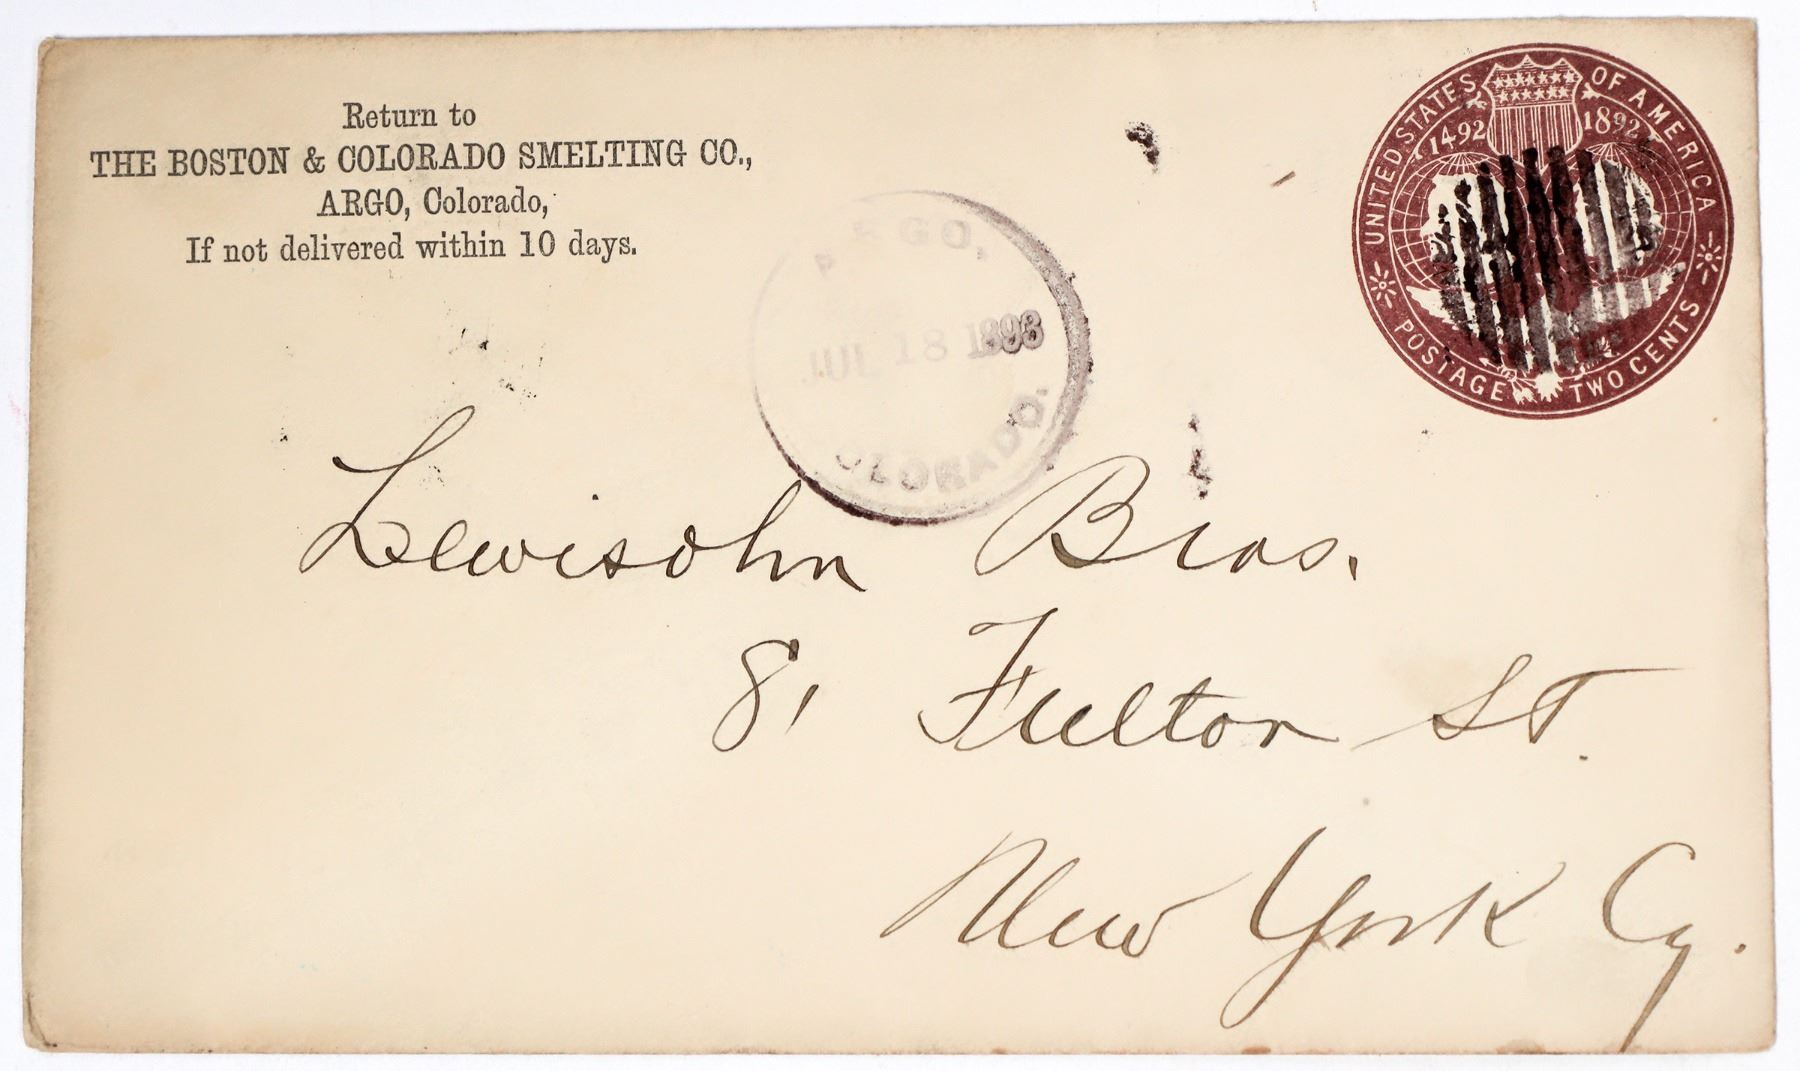 Return to
THE BOSTON & COLORADO SMELTING CO.,
ARGO, Colorado,
If not delivered within 10 days.
UNITED STATES OF AMERICA
1492 1892
POSTAGE TWO CENTS
ARGO,
JUL 18 1893
COLORADO.
Lewisohn Bros.
81 Fulton St.
New York Cy.